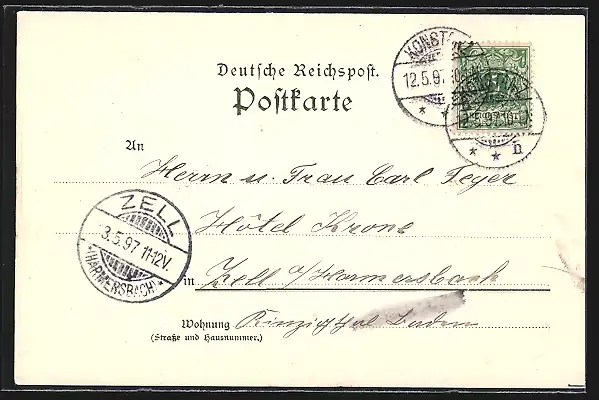 KONSTANZ
12.5.97.
Deutsche Reichspost.
Postkarte
An
Herrn u. Frau Carl Feyer
Hôtel Krone
in Zell a/Harmersbach
Wohnung Kinzigthal Baden
(Straße und Hausnummer.)
ZELL
13.5.97. 11-12V.
*(HARMERSBACH)*